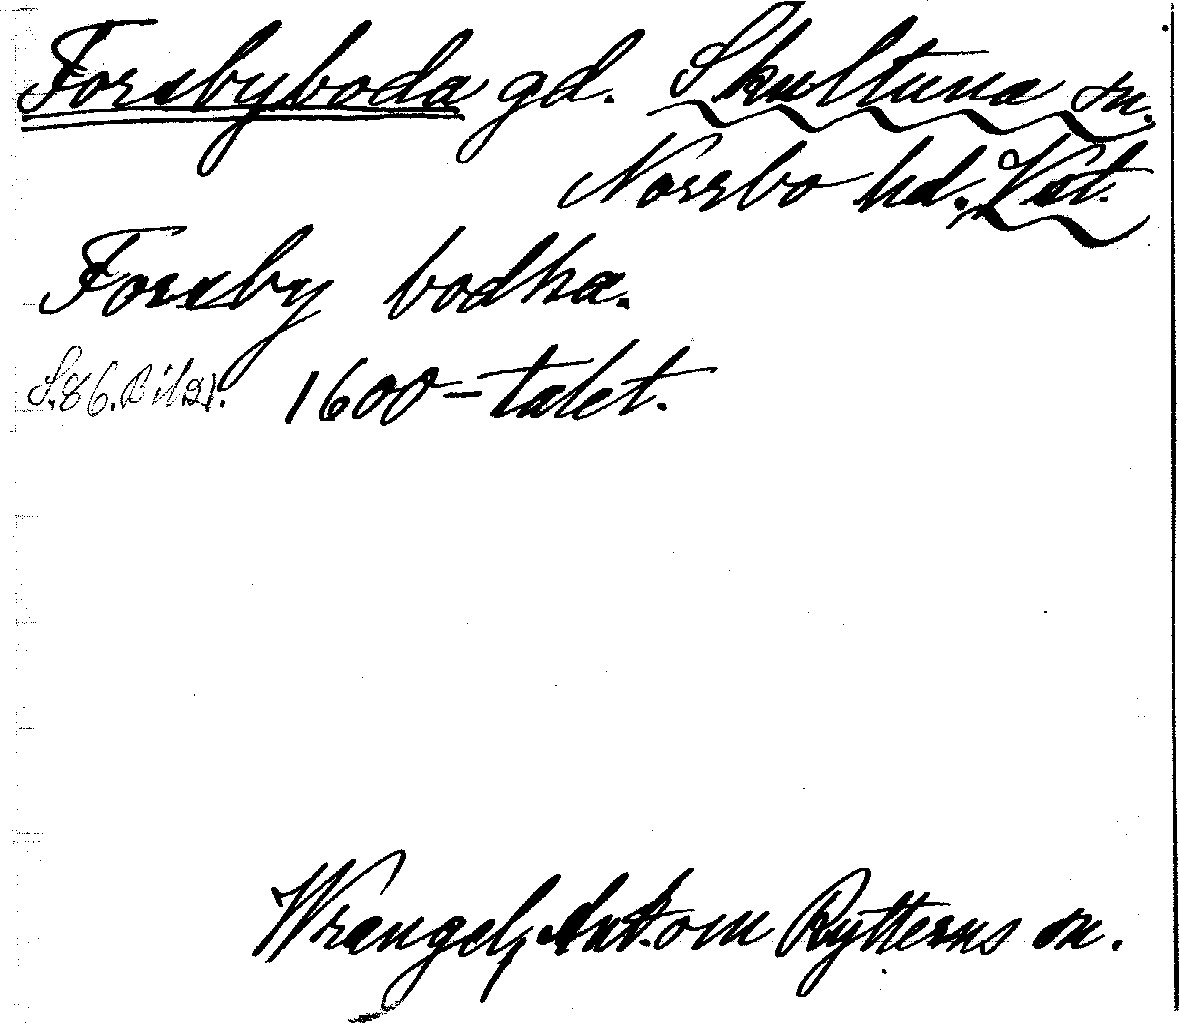 Forsbyboda gd. Skultuna sn.
Norrbo hd. Vst.
Forsby bodha.
S.86. Bil 21. 1600-talet.
Wrangel, Ant. om Rytterns sn.